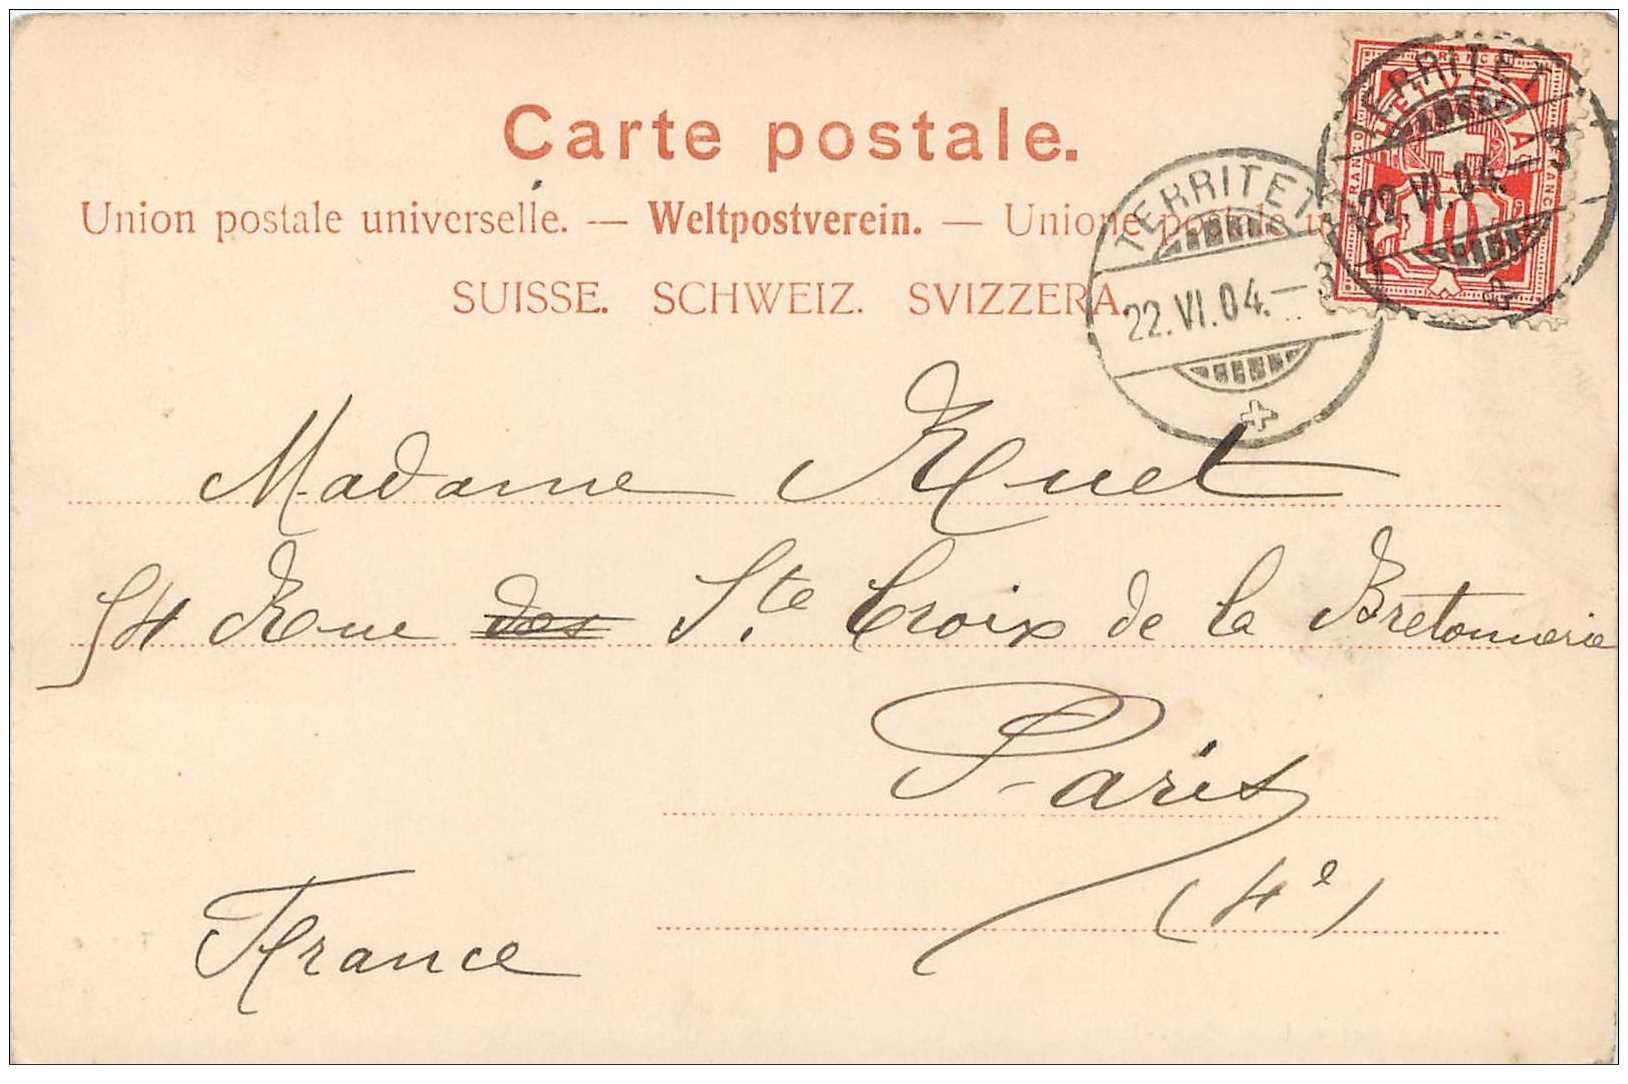 Carte postale.
Union postale universelle. — Weltpostverein. — Unione postale u
SUISSE. SCHWEIZ. SVIZZERA.
TERRITET
22.VI.04.–3
TERRITET
22.VI.04.–3
HELVETIA
FRANCO
10
Madame Ruet
54 Rue des Ste Croix de la Bretonnerie
Paris
(4e)
France